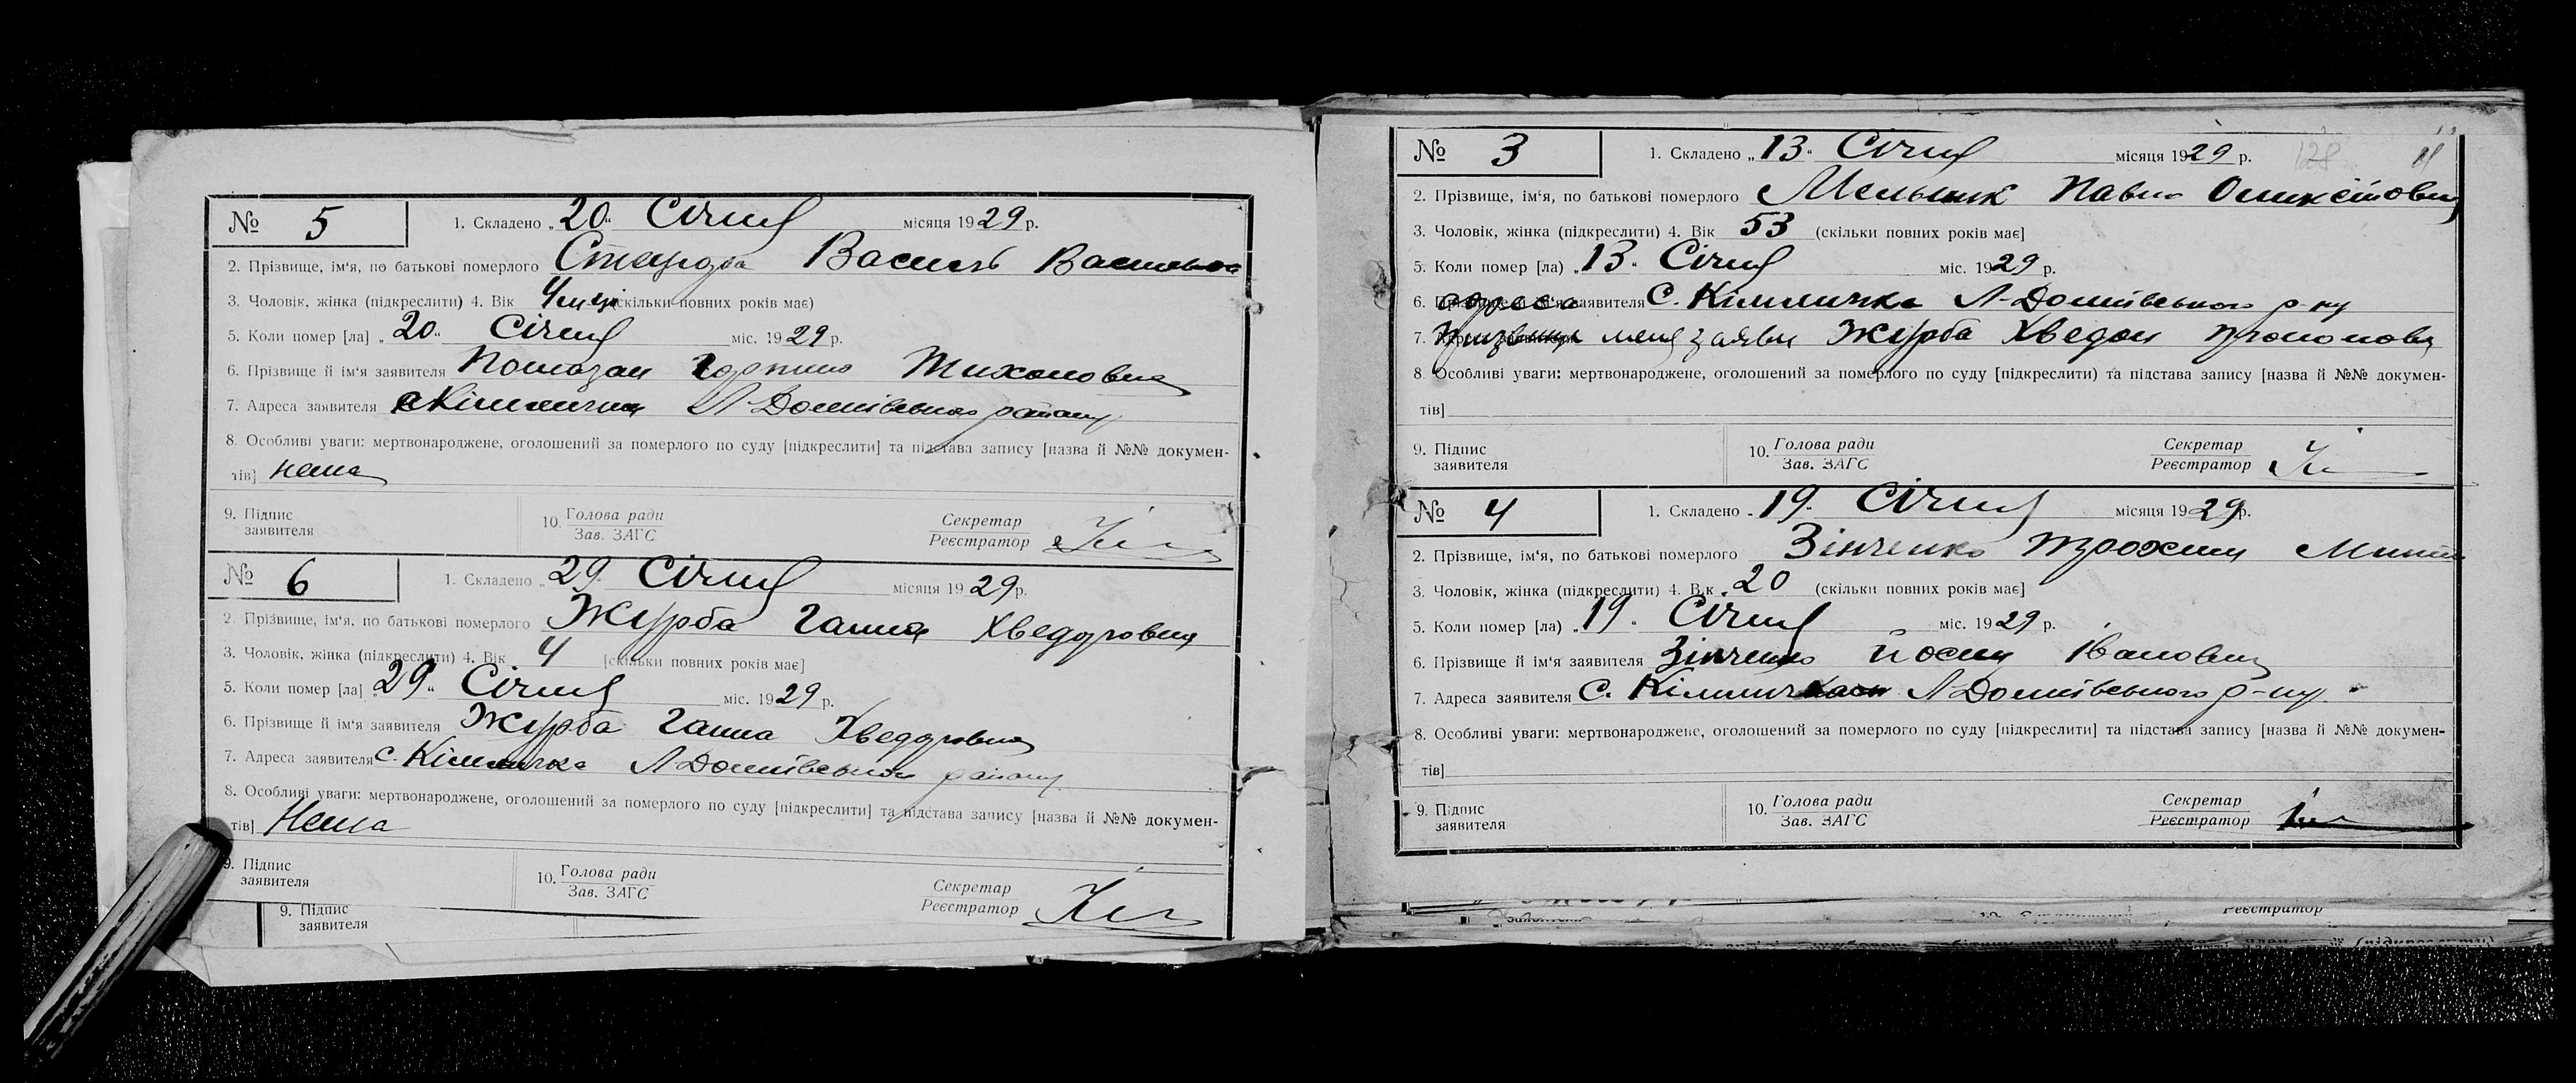 № 5 1. Складено „20“ Січня місяця 1929 р.
2. Прізвище, ім'я, по батькові померлого Василь
3. Чоловік, жінка (підкреслити) 4. Вік 4 (скільки повних років має)
5. Коли помер [ла] „20“ Січня міс. 1929 р.
6. Прізвище й ім'я заявителя Тихоновна
7. Адреса заявителя с Кімлична Л-Долинівського району
8. Особливі уваги: мертвонароджене, оголошений за померлого по суду [підкреслити] та підстава запису [назва й №№ докумен-
тів] нема
9. Підпис заявителя 10. Голова ради Зав. ЗАГС Секретар Реєстратор
№ 6 1. Складено „29“ Січня місяця 1929 р.
2. Прізвище, ім'я, по батькові померлого Журба Ганна Хведоровна
3. Чоловік, жінка (підкреслити) 4. Вік 4 [скільки повних років має]
5. Коли помер [ла] „29“ Січня міс. 1929 р.
6. Прізвище й ім'я заявителя Журба Ганна Хведоровна
7. Адреса заявителя с. Кімличка Л-Долинівського району
8. Особливі уваги: мертвонароджене, оголошений за померлого по суду [підкреслити] та підстава запису [назва й №№ докумен-
тів] Нема
9. Підпис заявителя 10. Голова ради Зав. ЗАГС Секретар Реєстратор
9. Підпис
заявителя
№ 3 1. Складено „13“ Січня місяця 1929 р. 128
2. Прізвище, ім'я, по батькові померлого Мельник Павло
3. Чоловік, жінка (підкреслити) 4. Вік 53 (скільки повних років має]
5. Коли помер [ла) „13“ Січня міс. 1929 р.
6. адреса заявителя С. Кімличка Л-Долинівського р-ну
7. Журба Хведон
8. Особливі уваги: мертвонароджене, оголошений за померлого по суду [підкреслити) та підстава запису [назва й №№ докумен-
тів]
9. Підпис заявителя 10. Голова ради Зав. ЗАГС Секретар Реєстратор
№ 4 1. Складено „19“ Січня місяця 1929 р.
2. Прізвище, ім'я, по батькові померлого Зінченко
3. Чоловік, жінка (підкреслити) 4. Вік 20 (скільки повних років має]
5. Коли помер [ла) „19“ Січня міс. 1929 р.
6. Прізвище й ім'я заявителя Зінченко Йосип Іванович
7. Адреса заявителя С. Л-Долинівського р-ну
8. Особливі уваги: мертвонароджене, оголошений за померлого по суду [підкреслити] та підстава запису [назва й №№ докумен-
тів]
9. Підпис заявителя 10. Голова ради Зав. ЗАГС Секретар Реєстратор
Реєстратор